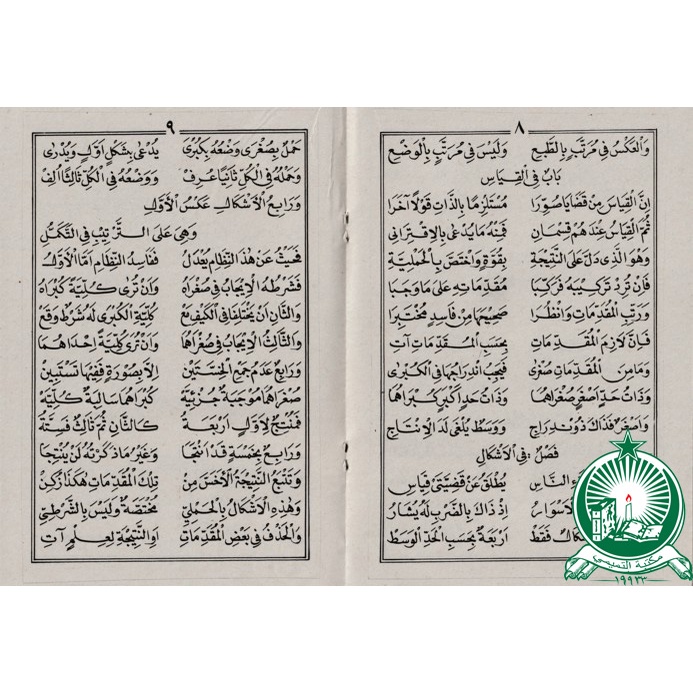 ٨
وَالْعَكْسُ فِي مُرَتَّبٍ بِالطَّبْعِ وَلَيْسَ فِي مُرَتَّبٍ بِالْوَضْعِ
بَابٌ فِي الْقِيَاسِ
إِنَّ الْقِيَاسَ مِنْ قَضَايَا صُوِّرَا مُسْتَلْزِمًا بِالذَّاتِ قَوْلًا آخَرَا
ثُمَّ الْقِيَاسُ عِنْدَهُمْ قِسْمَانِ فَمِنْهُ مَا يُدْعَى بِالِاقْتِرَانِي
وَهُوَ الَّذِي دَلَّ عَلَى النَّتِيجَةِ بِقُوَّةٍ وَاخْتَصَّ بِالْحَمْلِيَّةِ
فَإِنْ تُرِدْ تَرْكِيبَهُ فَرَكِّبَا مُقَدِّمَاتِهِ عَلَى مَا وَجَبَا
وَرَتِّبِ الْمُقَدِّمَاتِ وَانْظُرَا صَحِيحَهَا مِنْ فَاسِدٍ مُخْتَبِرَا
فَإِنَّ لَازِمَ الْمُقَدِّمَاتِ بِحَسَبِ الْمُقَدِّمَاتِ آتِ
وَمَا مِنَ الْمُقَدِّمَاتِ صُغْرَى فَيَجِبُ انْدِرَاجُهَا فِي الْكُبْرَى
وَذَاتُ حَدٍّ أَصْغَرٍ صُغْرَاهُمَا وَذَاتُ حَدٍّ أَكْبَرٍ كُبْرَاهُمَا
وَأَصْغَرٌ فَذَاكَ ذُو انْدِرَاجِ وَوَسَطٌ يُلْغَى لَدَ الْإِنْتَاجِ
فَصْلٌ : فِي الْأَشْكَالِ
النَّاسِ يُطْلَقُ عَنْ قَضِيَّتَيْ قِيَاسِ
الْأَسْوَارُ إِذْ ذَاكَ بِالضَّرْبِ لَهُ يُشَارُ
فَقَطْ أَرْبَعَةٌ بِحَسَبِ الْحَدِّ الْوَسَطْ
٩
حَمْلٌ بِصُغْرَى وَضْعُهُ بِكُبْرَى يُدْعَى بِشَكْلٍ أَوَّلٍ وَيُدْرَى
وَحَمْلُهُ فِي الْكُلِّ ثَانِيًا عُرِفْ وَوَضْعُهُ فِي الْكُلِّ ثَالِثًا أُلِفْ
وَرَابِعُ الْأَشْكَالِ عَكْسُ الْأَوَّلِ
وَهِيَ عَلَى التَّرْتِيبِ فِي التَّكَمُّلِ
فَحَيْثُ عَنْ هٰذَا النِّظَامِ يُعْدَلُ فَفَاسِدُ النِّظَامِ أَمَّا الْأَوَّلُ
فَشَرْطُهُ الْإِيجَابُ فِي صُغْرَاهُ وَأَنْ تُرَى كُلِّيَّةً كُبْرَاهُ
وَالثَّانِ أَنْ يَخْتَلِفَا فِي الْكَيْفِ مَعْ كُلِّيَّةِ الْكُبْرَى لَهُ شَرْطٌ وَقَعْ
وَالثَّالِثُ الْإِيجَابُ فِي صُغْرَاهُمَا وَأَنْ تُرَى كُلِّيَّةً إِحْدَاهُمَا
وَرَابِعٌ عَدَمُ جَمْعِ الْخِسَّتَيْنِ إِلَّا بِصُورَةٍ فَفِيهَا تَسْتَبِينْ
صُغْرَاهُمَا مُوجَبَةٌ جُزْئِيَّةْ كُبْرَاهُمَا سَالِبَةٌ كُلِّيَّةْ
فَمُنْتِجٌ لِأَوَّلٍ أَرْبَعَةْ كَالثَّانِ ثُمَّ ثَالِثٌ فَسِتَّةْ
وَرَابِعٌ بِخَمْسَةٍ قَدْ أَنْتَجَا وَغَيْرُ مَا ذَكَرْتُهُ لَنْ يُنْتِجَا
وَتَتْبَعُ النَّتِيجَةُ الْأَخَسَّ مِنْ تِلْكَ الْمُقَدِّمَاتِ هٰكَذَا زُكِنْ
وَهٰذِهِ الْأَشْكَالُ بِالْحَمْلِيِّ مُخْتَصَّةٌ وَلَيْسَ بِالشَّرْطِيِّ
وَالْحَذْفُ فِي بَعْضِ الْمُقَدِّمَاتِ أَوِ النَّتِيجَةِ لِعِلْمٍ آتِ
مكتبة التميمي